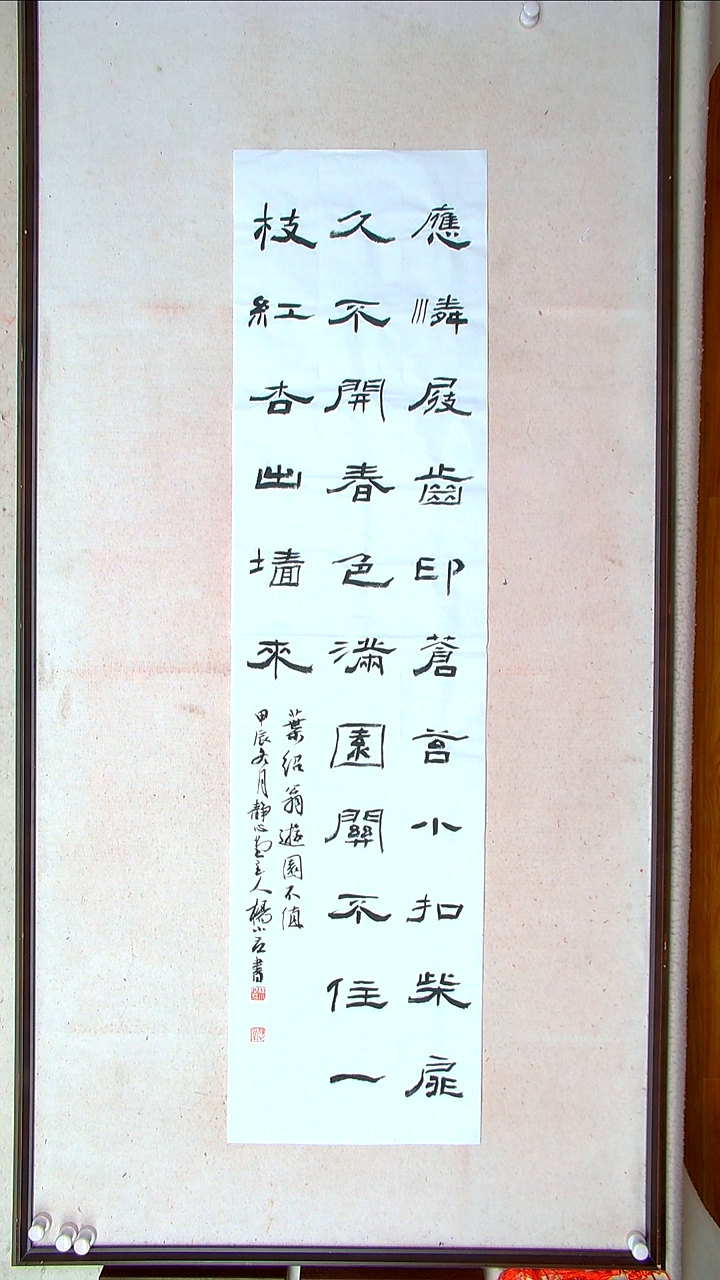 應憐屐齒印蒼苔小扣柴扉
久不開春色滿園關不住一
枝紅杏出墻來
葉紹翁遊園不值
甲辰冬月靜心堂主人楊小石書